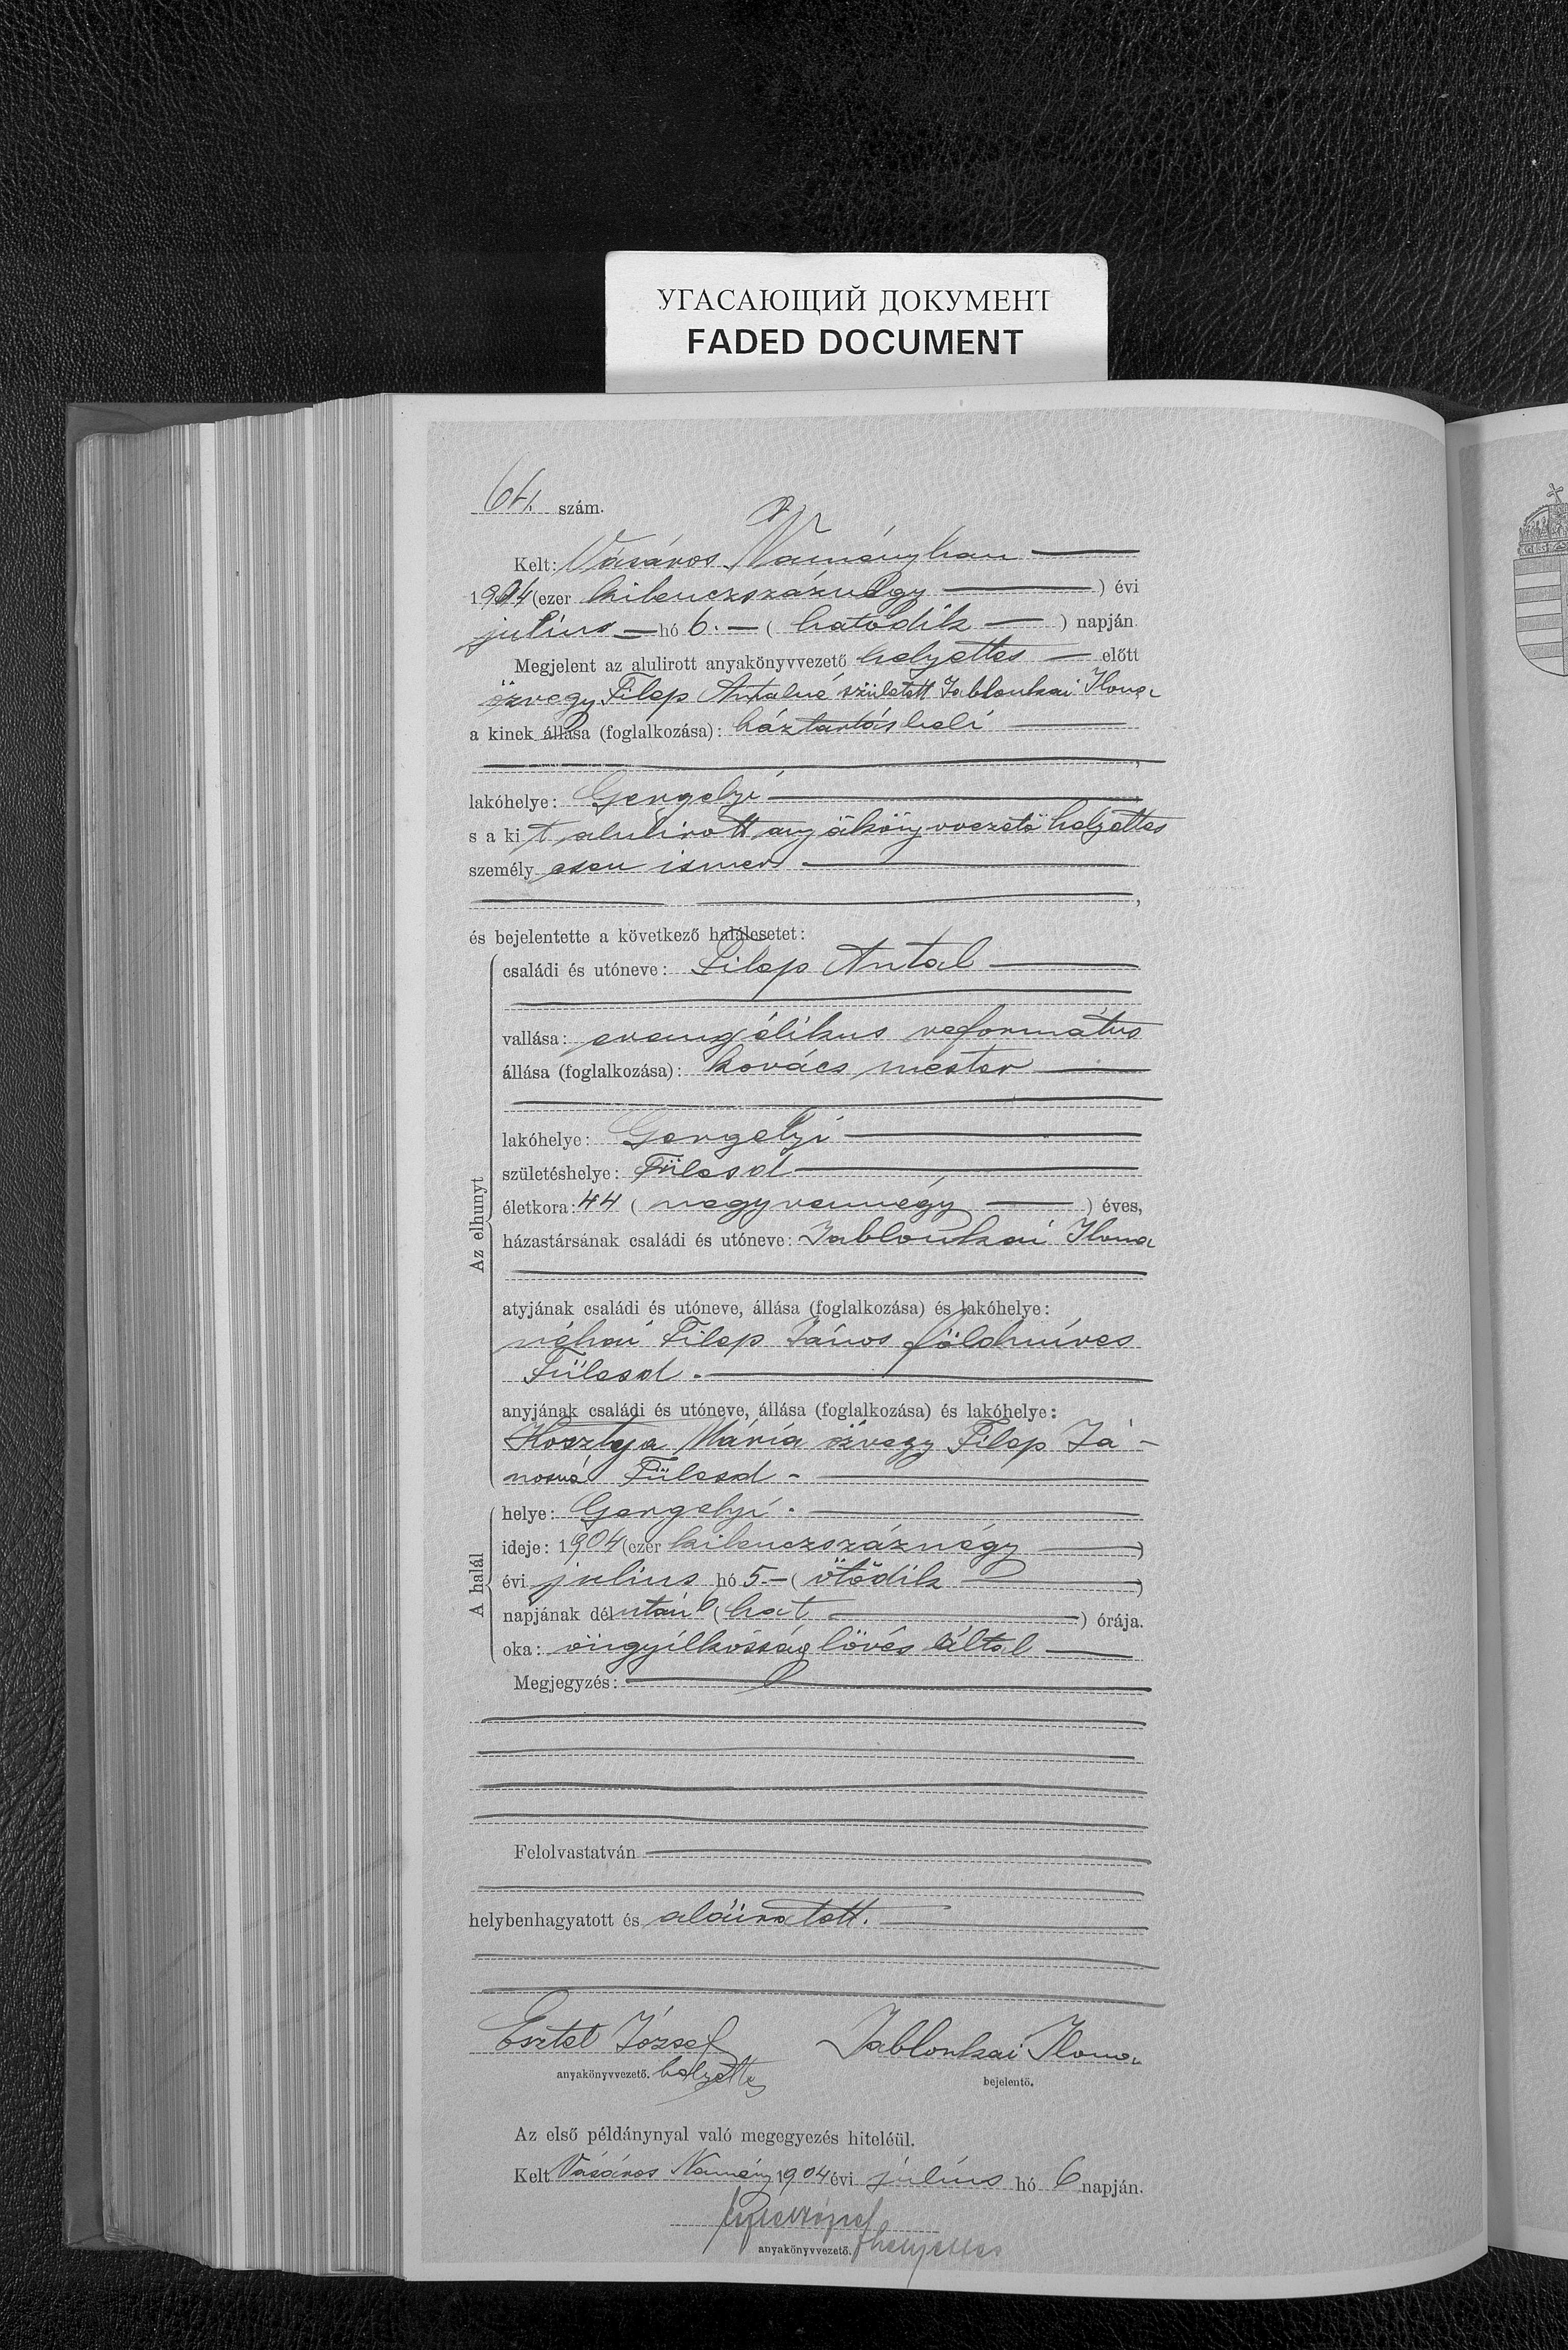 УГАСАЮЩИЙ ДОКУМЕНТ
FADED DOCUMENT
64. szám.
Kelt: Vásáros Naményban
1904 (ezer kilenczszáznégy ) évi
julius hó 6. ( hatodik ) napján.
Megjelent az alulirott anyakönyvvezető helyettes előtt
özvegy Filep Antalné született Jablonkai Ilona
a kinek állása (foglalkozása): háztartásbeli
lakóhelye: Gergelyi
s a kit alulirott anyakönyvvezető helyettes
személyesen ismer
és bejelentette a következő halálesetet:
Az elhunyt
családi és utóneve: Filep Antal
vallása: evangélikus református
állása (foglalkozása): kovács mester
lakóhelye: Gergelyi
születéshelye: Fülesd
életkora: 44 ( negyvennégy ) éves,
házastársának családi és utóneve: Jablonkai Ilona
atyjának családi és utóneve, állása (foglalkozása) és lakóhelye:
néhai Filep János földmíves
Fülesd.
anyjának családi és utóneve, állása (foglalkozása) és lakóhelye:
Kosztya Mária özvegy Filep Já-
nosné Fülesd.
A halál
helye: Gergelyi.
ideje: 1904 (ezer kilenczszáznégy )
évi julius hó 5. ( ötödik )
napjának délután 6 ( hat ) órája.
oka: öngyilkosság lövés által
Megjegyzés:
Felolvastatván
helybenhagyatott és aláiratott.
József Jablonkai Ilona
anyakönyvvezető. helyettes bejelentő.
Az első példánynyal való megegyezés hiteléül.
Kelt Vásáros Namény 1904 évi július hó 6 napján.
anyakönyvvezető. helyettes